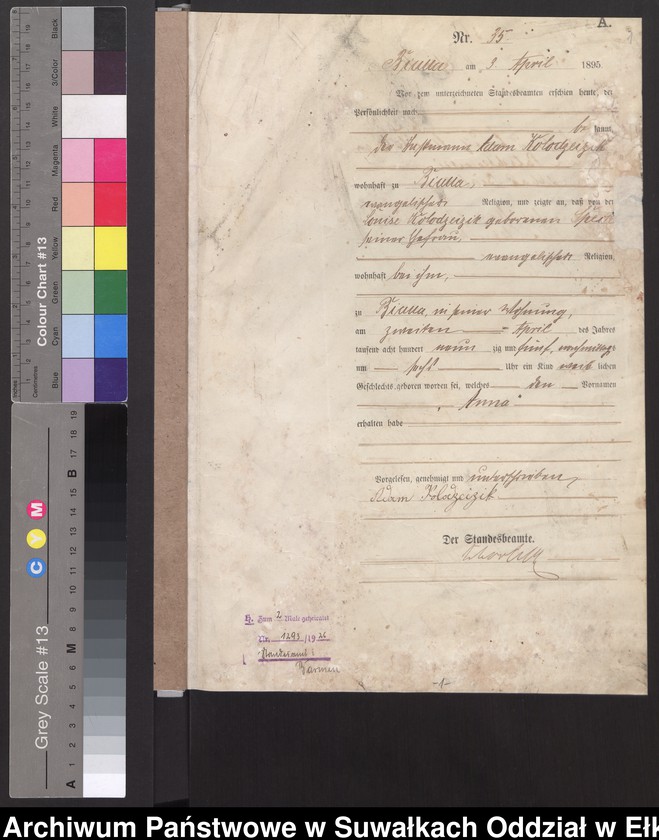 A.
Nr. 35
am 3 April 1895
Vor dem unterzeichneten Standesbeamten erschien heute, der
Persönlichkeit nach
be kannt,
der Adam Kolodzeizik
wohnhaft zu
evangelischer Religion, und zeigte an, daß von der
Louise Kolodzeizik geborenen
seiner Ehefrau,
evangelischer Religion,
wohnhaft bei ihm,
zu in seiner Wohnung,
am zweiten April des Jahres
tausend acht hundert neun zig und fünf, nachmittags
um sechs Uhr ein Kind weib lichen
Geschlechts geboren worden sei, welches den Vornamen
"Anna"
erhalten habe
Vorgelesen, genehmigt und unterschrieben
Adam Kolodzeizik
Der Standesbeamte.
H. Zum 2 Male geheiratet
Nr. 1293/19 26
Standesamt:
Barmen
-1-
Black
3/Color
White
Magenta
Red
Yellow
Green
Cyan
Blue
Colour Chart #13
Inches
Centimetres
Grey Scale #13
C Y M
A 1 2 3 4 5 6 M 8 9 10 11 12 13 14 15 B 17 18 19
Archiwum Państwowe w Suwałkach Oddział w Ełk